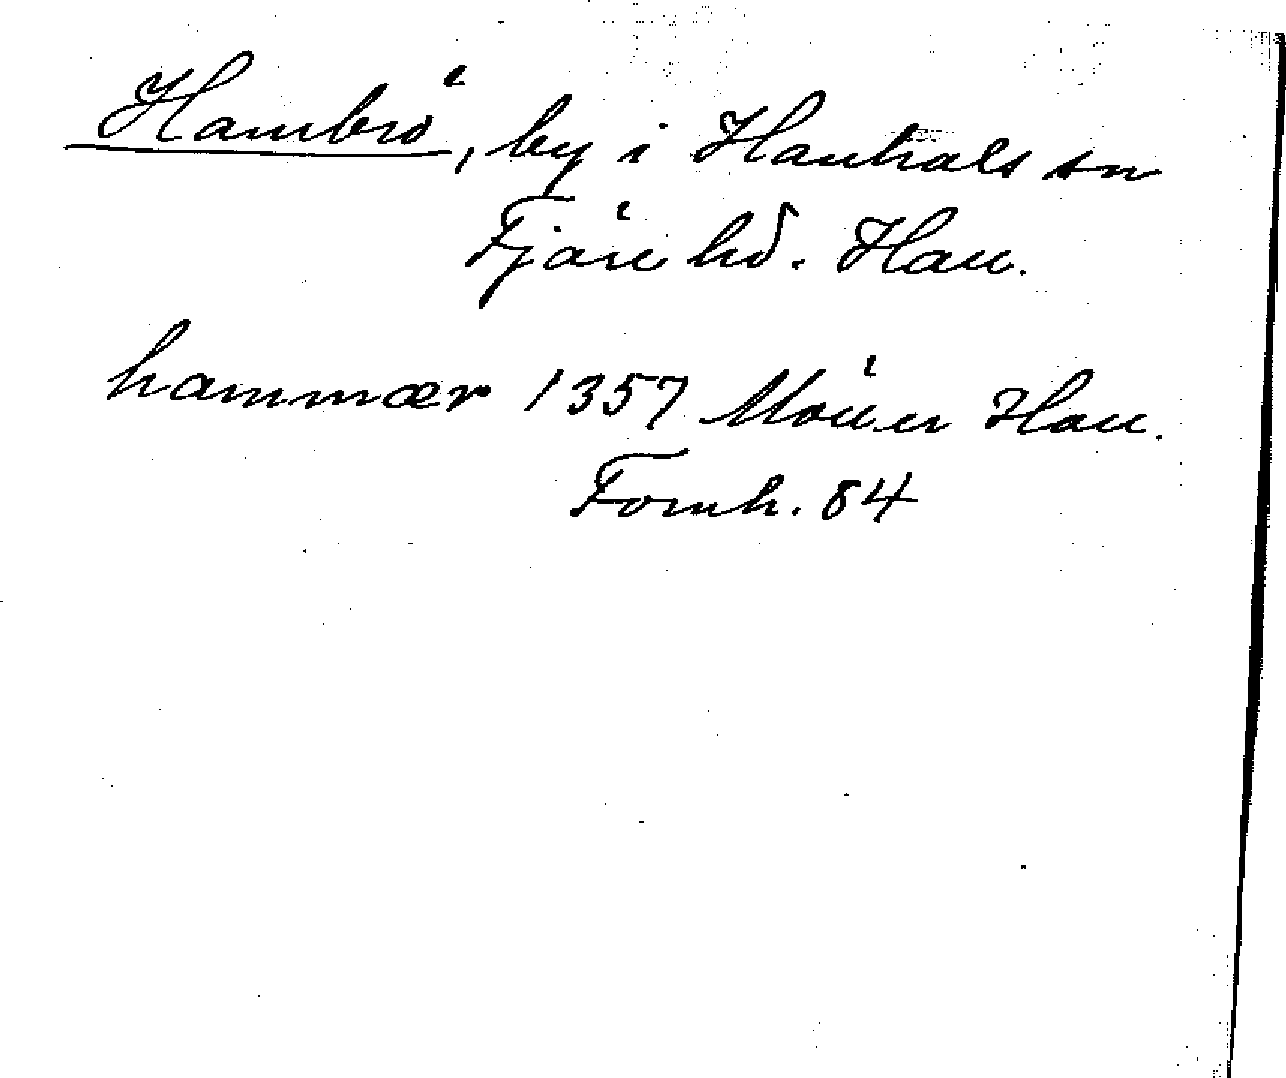 Hambrö, by i Hanhals sn
Fjäre hd. Hall.
hammær 1357 Möller Hall.
Fornh. 84